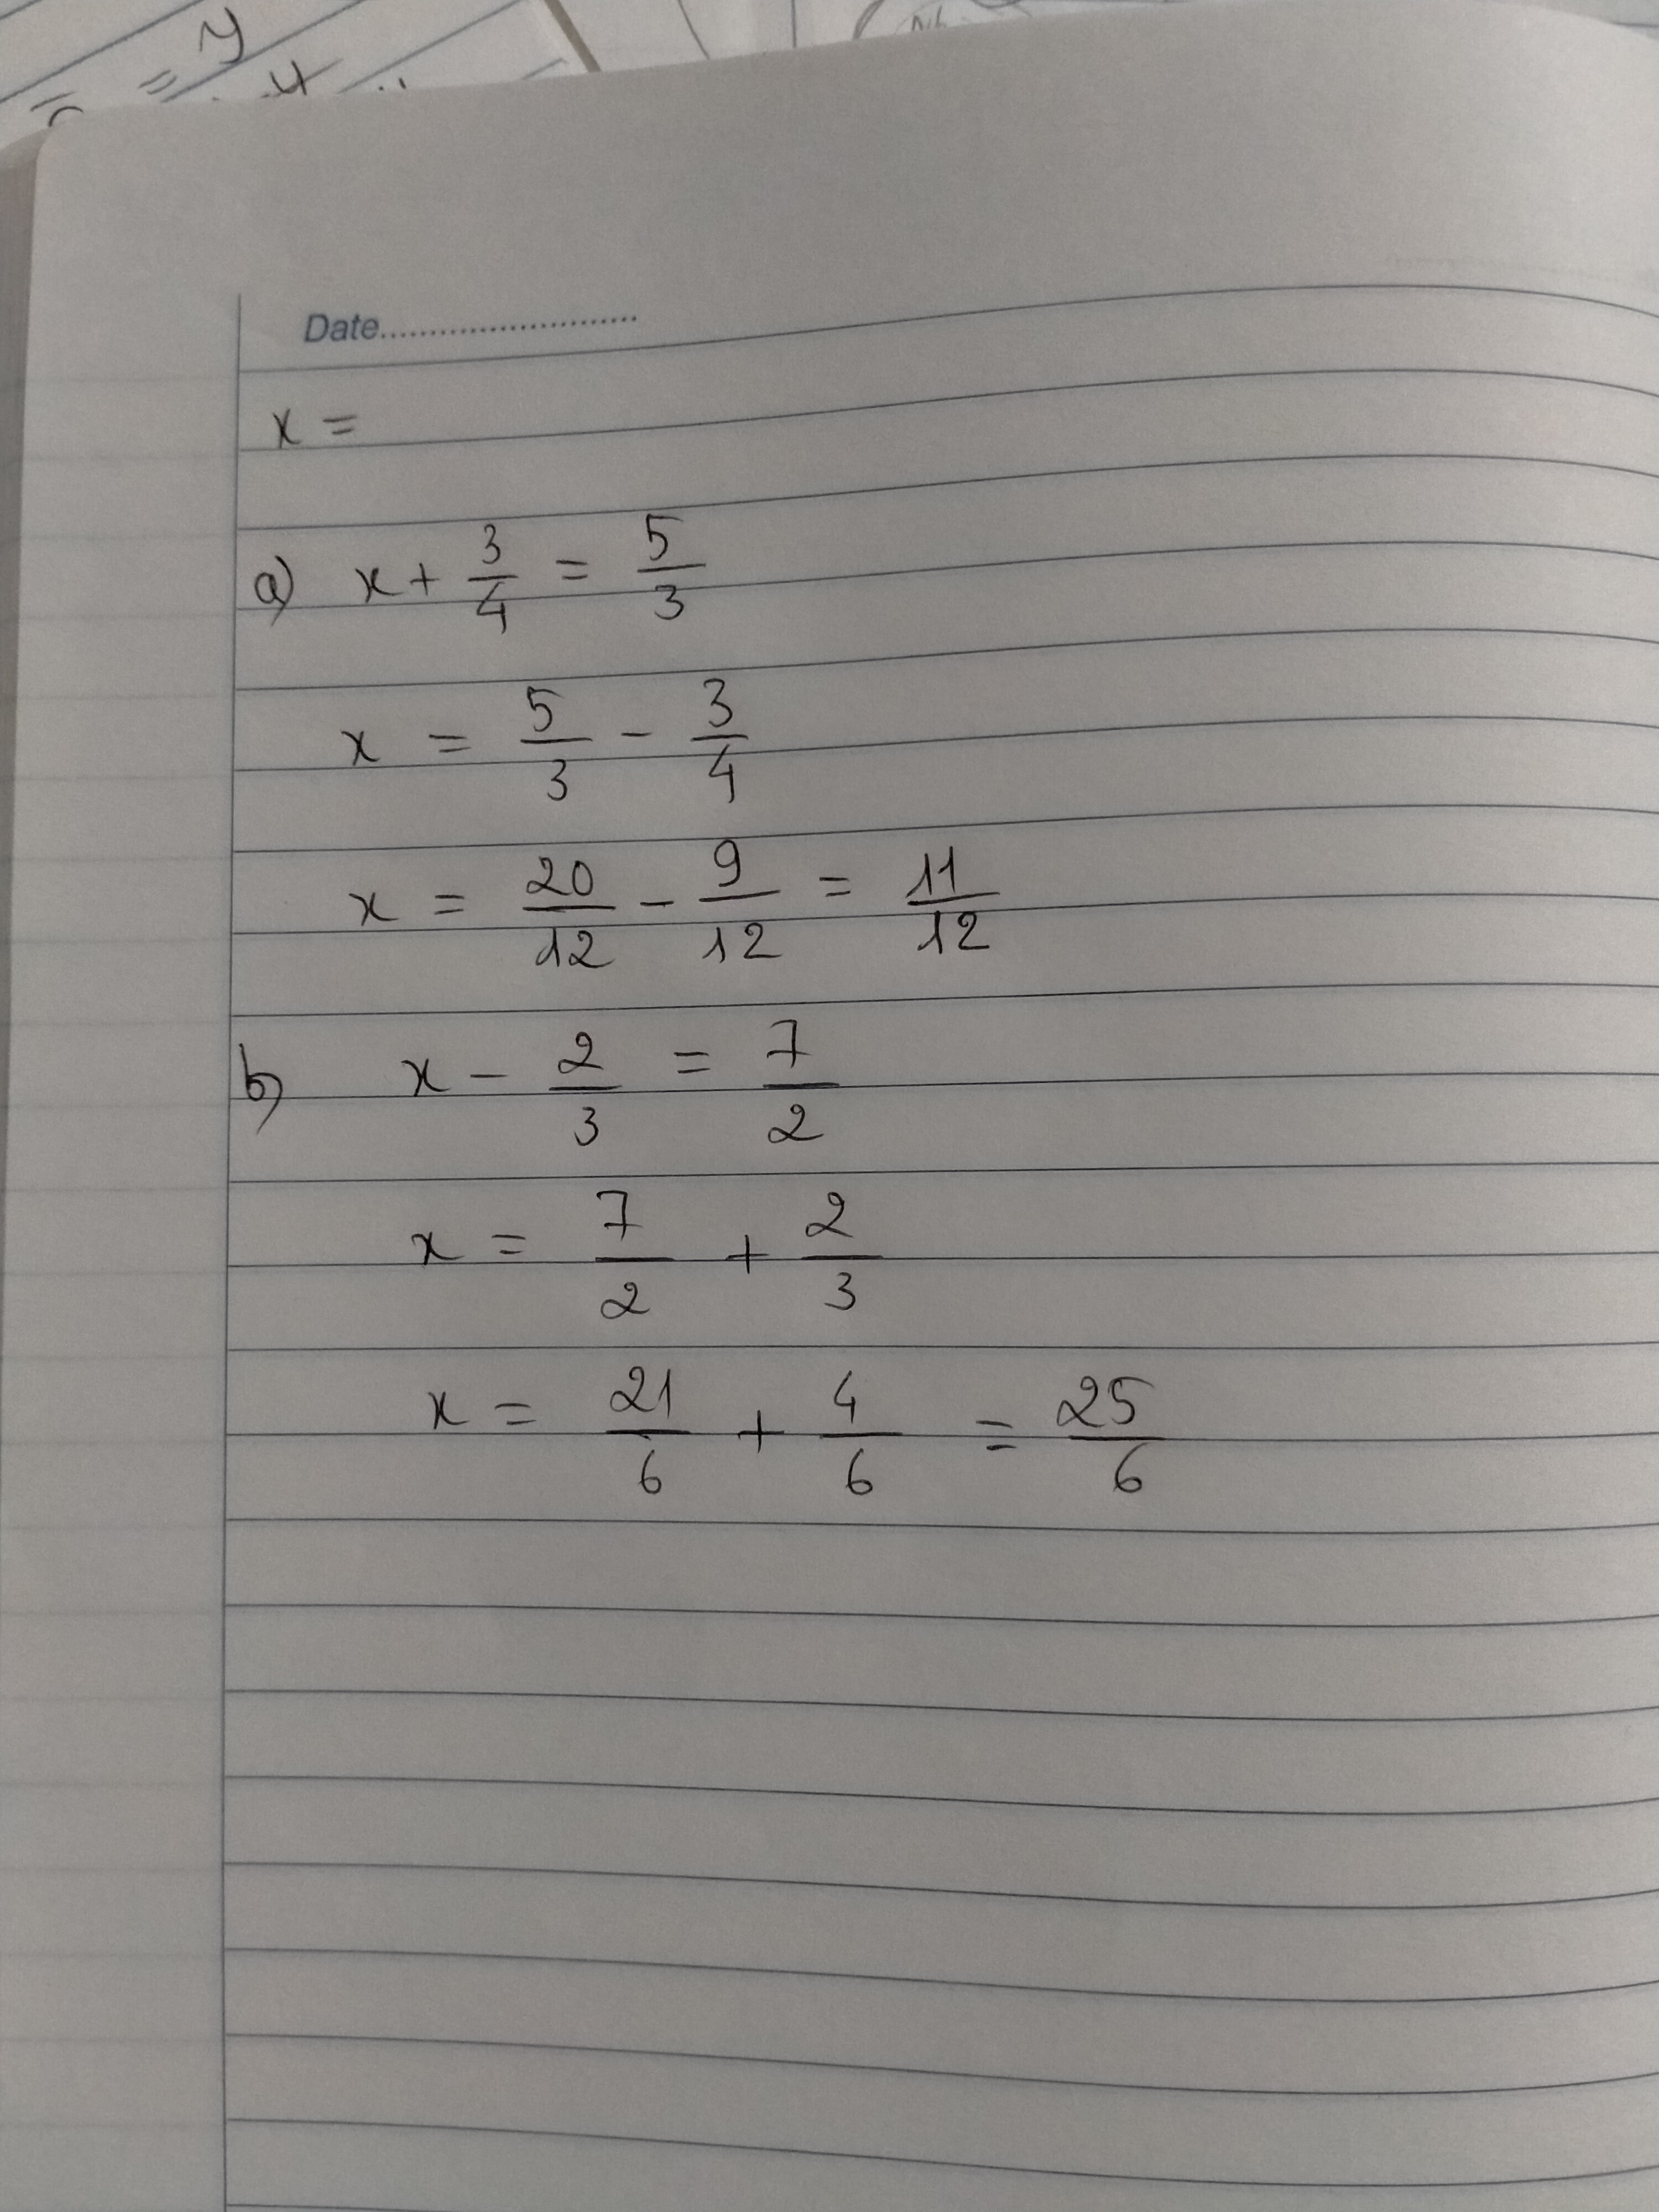 Date..........................
x =
a) x + 3/4 = 5/3
x = 5/3 - 3/4
x = 20/12 - 9/12 = 11/12
b) x - 2/3 = 7/2
x = 7/2 + 2/3
x = 21/6 + 4/6 = 25/6